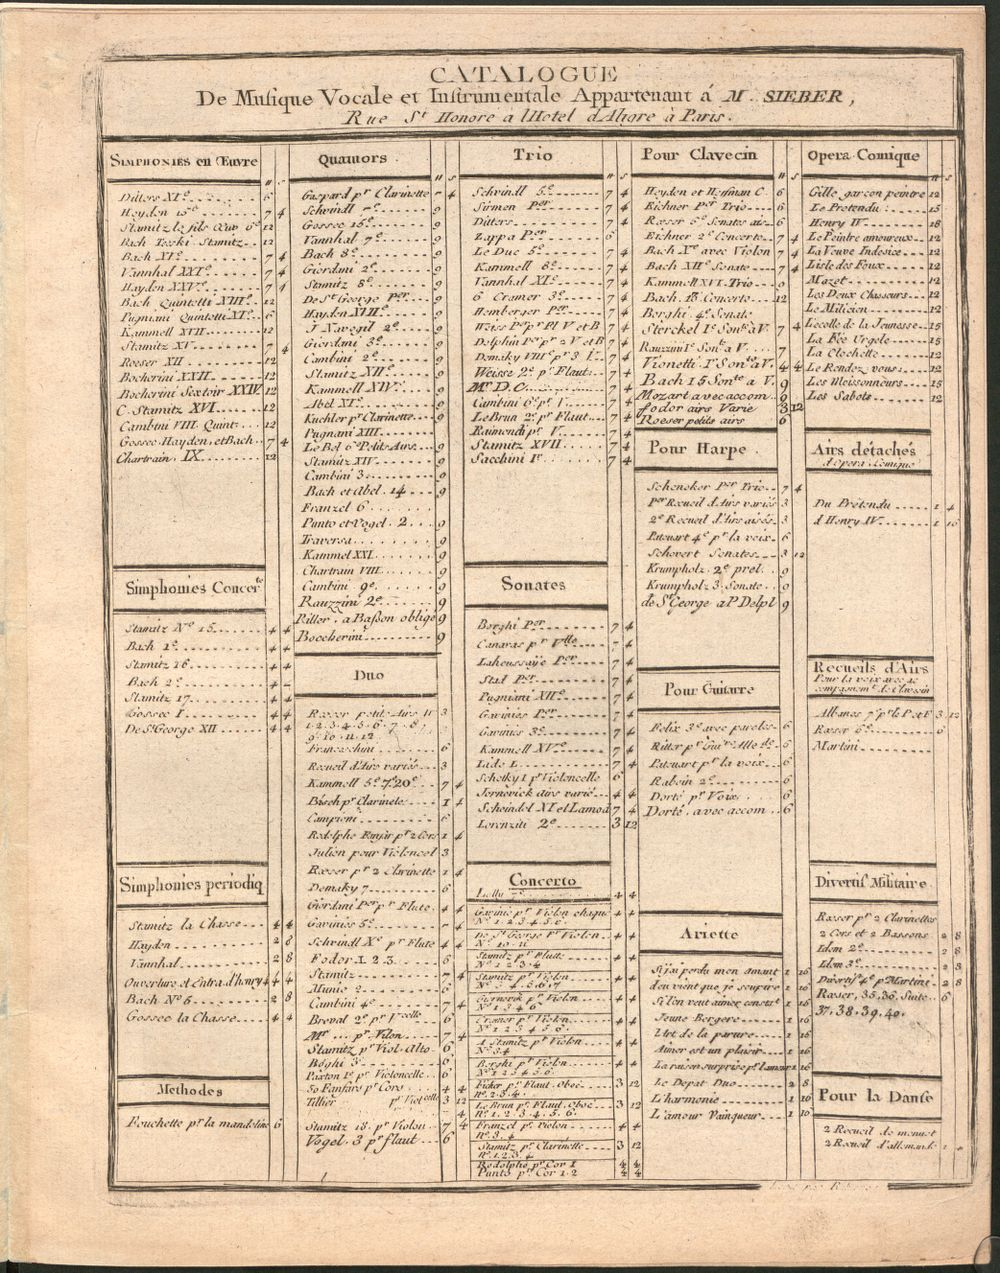 CATALOGUE
De Musique Vocale et Instrumentale Appartenant á M. SIEBER,
Rue St Honore a l'Hotel d'Aligre à Paris.
SIMPHONIES en Œuvre
Ditters XIe 6
Heyden 15e 7 4
Stamitz le fils Œuv 6e 12
Bach Toeski Stamitz 12
Bach XIe 7 4
Vannhal XXIe 7 4
Hayden XXVe 7 4
Bach Quintetti XIIIe 12
Pugniani Quintetti XIe 6
Kammell XVII 12
Stamitz XV 7 4
Roeser XII 12
Bocherini XXII 12
Bocherini Sextoir XXIV 12
C. Stamitz XVI 12
Cambini VIII Quint: 12
Gossec Hayden, et Bach 7 4
Chartrain IX 12
Simphonies Concerte
Stamitz No 15 4 4
Bach 1e 4 4
Stamitz 16 4 4
Bach 2e 4
Stamitz 17 4 4
Gossec I 4 4
De St George XII 4 4
Simphonies periodiq
Stamitz la Chasse 4 4
Hayden 2 8
Vannhal 2 8
Ouverture et Entra. d'henry 4 4
Bach No 6 2 8
Gossec la Chasse 4 4
Methodes
Fouchette pr la mandoline 6
Quatuors
Gaspard pr Clarinette 7 4
Schvindl 7e 9
Gossec 15e 9
Vannhal 7e 9
Bach 8e 9
Giordani 2e 9
Stamitz 8e 9
De St George Per 9
Hayden XVIIIe 9
J Navogil 2e 9
Giordani 3e 9
Cambini 2e 9
Stamitz XIIe 9
Kammell XIVe 9
Abel XIe 9
Kuchler pr Clarinette 9
Pugnani XIII
Le Bel 6e Petits Airs 9
Stamitz XIV 9
Cambini 3e 9
Bach et Abel. 14 9
Franzel 6
Punto et Vogel. 2 9
Traversa 9
Kammel XXI 9
Chartrain VIII 9
Cambini 9e 9
Rauzzini 2e 9
Ritter, a Basson obligé 9
Boccherini 9
Duo
Rœser petits Airs 11 3
1. 2. 3. 4. 5. 6. 7. 8.
9. 10. 11. 12
Franceschini 6
Recueil d'Airs variés 3
Kammell 5e 7e 20e 7 4
Bisch pr Clarinete 1 4
Campioni 6
Rodolphe Fanfar pr 2 Cors 1 4
Julien pour Violoncel 3
Rœser pr 2 Clarinette 1 4
Demaky 7 6
Giordani Per pr Flute 4 4
Gaviniés 5e 6
Schvindl Xe pr Flute 4 4
Fodor 1. 2. 3 6
Stamitz 7 4
Munie 2 6
Cambini 4e 7 4
Breval 2e pr Vcelle 6
Mr ... pr Vilon 7 4
Stamitz pr Viol. Alto 6
Böghi 3e 6
Paxton 1e pr Violoncelle 6
50 Fanfars pr Cors 4 4
Tillier pr Violcelle 3 12
4
Stamitz 18. pr Violon 7 4
Vogel. 3 pr flaut 6
Trio
Schvindl 5e 7 4
Sirmen Per 7 4
Ditters 7 4
Zappa Per 6
Le Duc 5e 7 4
Kammell 8e 7 4
Vannhal XIe 7 4
6 Cramer 3e 7 4
Hemberger Per 7 4
Weiss Per pr Fl V et B 7 4
Dolphin Per pr 2 V et B 7 4
Demaky VIIIe pr 3 F 7 4
Weisse 2e pr Flaut 7 4
Mr D.C. 7 4
Cambini 6e pr V 7 4
Le Brun 2e pr Flaut 7 4
Raimondi pr V 7 4
Stamitz XVII 7 4
Sacchini 1r 7 4
Sonates
Borghi Per 7 4
Canavas pr Vlle 7 4
Lahoussaÿe Per 7 4
Stad Per 7 4
Pugniani XIIe 7 4
Gaviniés Per 7 4
Gaviniés 3e 7 4
Kammell XVe 7 4
Lidé L 7 4
Schetky I pr Violoncelle 6
Jernövick airs varié 4 4
Scheindel XI et Lamod 7 4
Lorenziti 2e 3 12
Concerto
Lully 4 4
Gavinié pr Violon chaque 4 4
No 1. 2. 3. 4. 5. 6.
De St George Pr Violon 4 4
No 10. 11
Stamitz pr Flutte 4 4
No 1 2 3. 4
Stamitz pr Violon 4 4
No 3 4. 5. 6. 7
Giernovik pr Violon 4 4
No 1 3 4 6
Cramer pr Violon 4 4
No 1. 2. 3 4. 5. 6.
A Stamitz pr Violon 4 4
No 3 4
Borghi pr Violon 4 4
No 1. 2 3 4. 5. 6.
Fider pr Flaut. Oboé 3 12
No. 2. 3. 4.
Le Brun pr Flaut. Oboé 3 12
No. 1. 2. 3. 4. 5. 6.
Franzel pr violon 4 4
No. 3. 4
Stamitz pr Clarinette 3 12
No. 1. 2. 3. 4
Rodolphe pr Cor 1 4 4
Punto pr Cor 1. 2 4 4
Pour Clavecin
Heyden et Hoffman C. 6
Eichner Per Trio 6
Rœser 5e Sonates ais 6
Eichner 2e Concerto 7 4
Bach Xe avec Violon 7 4
Bach XIIe Sonate 7 4
Kammell XVI. Trio 9
Bach. 13 Concerto 12
Borghi 4e Sonate
Sterckel Ir Sonte à V. 7 4
Rauzzini Ir Sonte a V 7
Vionetti Ir Sonte à V. 4 4
Bach 15 Sonte a V. 9
Mozart avec accom 9
Fodor airs Varie 3 12
Roeser petits airs 6
Pour Harpe
Schencker Per Trio 7 4
Per Recueil d'Airs variés 3
2e Recueil d'Airs aisés 3
Patouart 4e pr la voix 6
Schovert Sonates 3 12
Krumpholz. 2e prel. 9
Krumpholz. 3. Sonate 9
de St George a P Delpl 9
Pour Guitarre
Felix 3e avec paroles 6
Ritter pr Guire Alle de 6
Patouart pr la voix 6
Rabein 2e 6
Dorté pr Voix 6
Dorté, avec accom 6
Ariette
Si j'ai perdu mon amant 1 16
d'ou vient que je soupire 1 16
Si l'on veut aimer constt 1 16
Jeune Bergere 1 16
L'Art de la parure 1 16
Aimer est un plaisir 1 16
La raison surprise pr l'amour 1 16
Le Depat Duo 2 8
L'harmonie 1 16
L'amour Vainqueur 1 10
Opera Comique
Gille garcon peintre 12
Le Pretendu 15
Henry IV 18
Le Peintre amoureux 12
La Veuve Indesice 12
L'isle des Foux 12
Mazet 12
Les Deux Chasseurs 12
Le Milicien 12
L'ecolle de la Jeunesse 15
La Fée Urgele 15
La Clochette 12
Le Rendez vous 12
Les Moissonneurs 15
Les Sabots 12
Airs détachés
d'Opera Comique
Du Prétendu 1 4
d'Henry IV 1 16
Recueils d'Airs
Pour la voix avec ac
compagnemt de Clavecin
Albanes 7e pr le P et F 3 12
Rœser 6e 6
Martini
Divertisse Militaire
Rœser pr 2 Clarinettes
2 Cors et 2 Bassons 2 8
Idem 2e 2 8
Idem 3e 2 8
Divertis 4e pr Martini 2 8
Rœser, 35, 36, Suite 6
37. 38. 39. 40.
Pour la Danse
2 Recueil de menuet
2 Recueil d'allemande 1